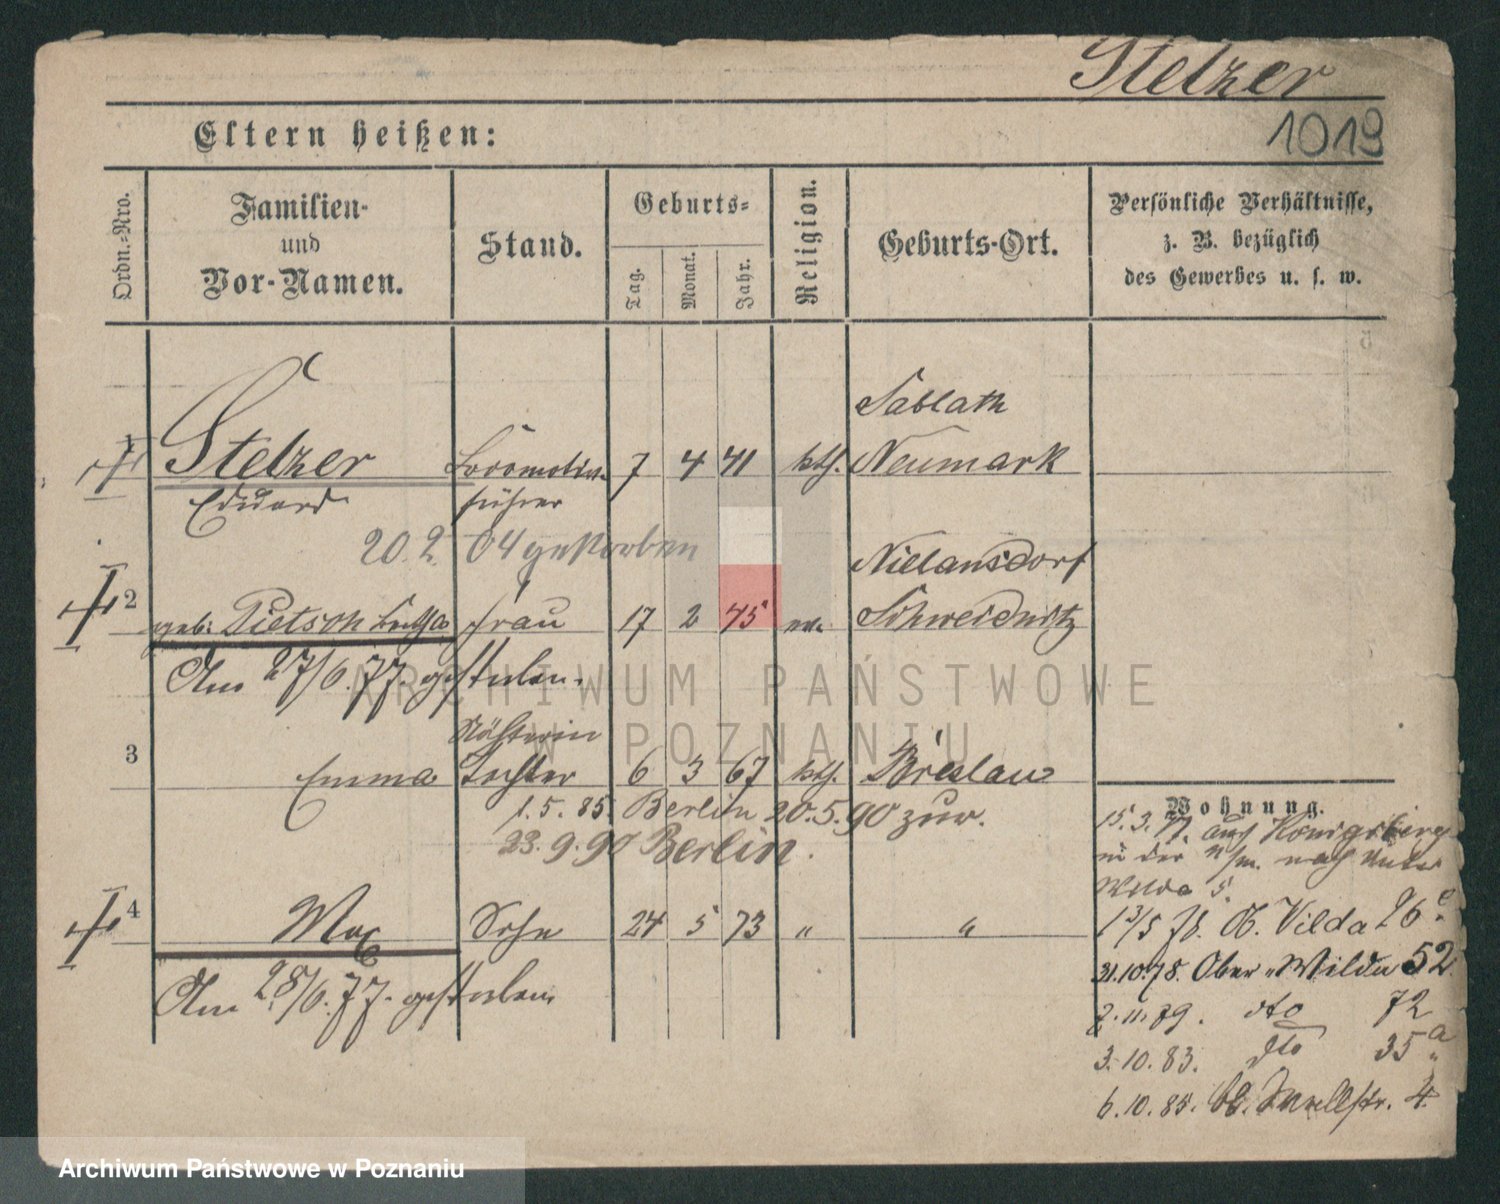 Stelzer
1019
Eltern heißen:
Ordn.-Nro.
Familien-
und
Vor-Namen.
Stand.
Geburts-
Tag.
Monat.
Jahr.
Religion.
Geburts-Ort.
Persönliche Verhältnisse,
z. B. bezüglich
des Gewerbes u. s. w.
Sablath
1 Stelzer Locomotiv- 7 4 41 kth. Neumark
Eduard führer
20.2. 04 gestorben
2 geb: Pietsch Frau 17 2 45 ev. Schweidnitz
Am 27/6. 77. gestorben.
Nähterin
3 Emma Tochter 6 3 67 kth. Breslau
1.5.85. Berlin 20.5.90 zur.
23.9.90 Berlin.
4 Max Sohn 24 5 73 " "
Am 28/6. 77. gestorben
Wohnung.
15.3.77. aus Königsberg
in der N/m. nach Unter
Wilda 5.
O. Vilda 26
31.10.78. Ober-Wilda 52
2.11.79. dto 72
3.10.83. dto 35a
6.10.85. 4.
ARCHIWUM PAŃSTWOWE
W POZNANIU
Archiwum Państwowe w Poznaniu